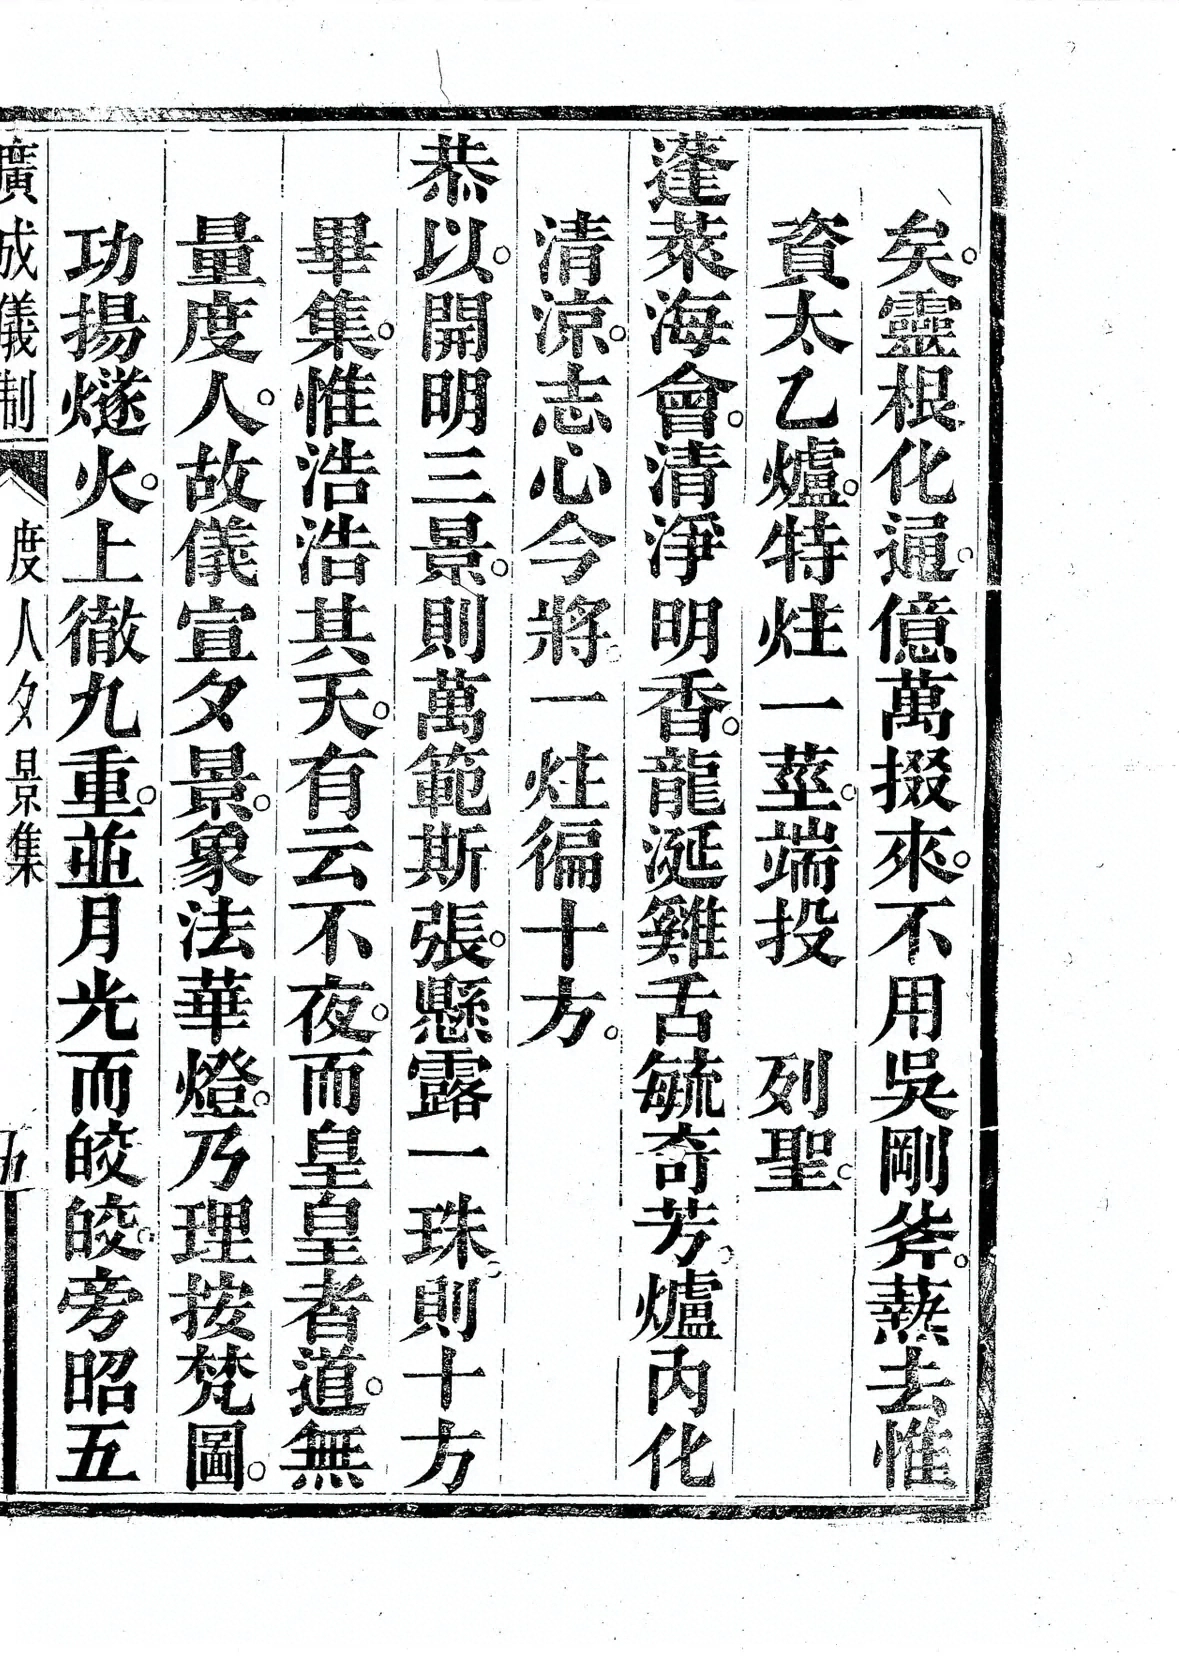 矣。靈根化通。億萬掇來。不用吳剛斧。爇去惟
資太乙爐。特炷一莖。端投　列聖。
蓬萊海會。清淨明香。龍涎雞舌毓奇芳。爐內化
清涼。志心今將。一炷徧十方。
恭以。開明三景。則萬範斯張。懸露一珠。則十方
畢集。惟浩浩其天。有云不夜。而皇皇者道。無
量度人。故儀宣夕景。象法華燈。乃理按梵圖。
功揚燧火。上徹九重。並月光而皎皎。旁昭五
廣成儀制　度人夕景集　五